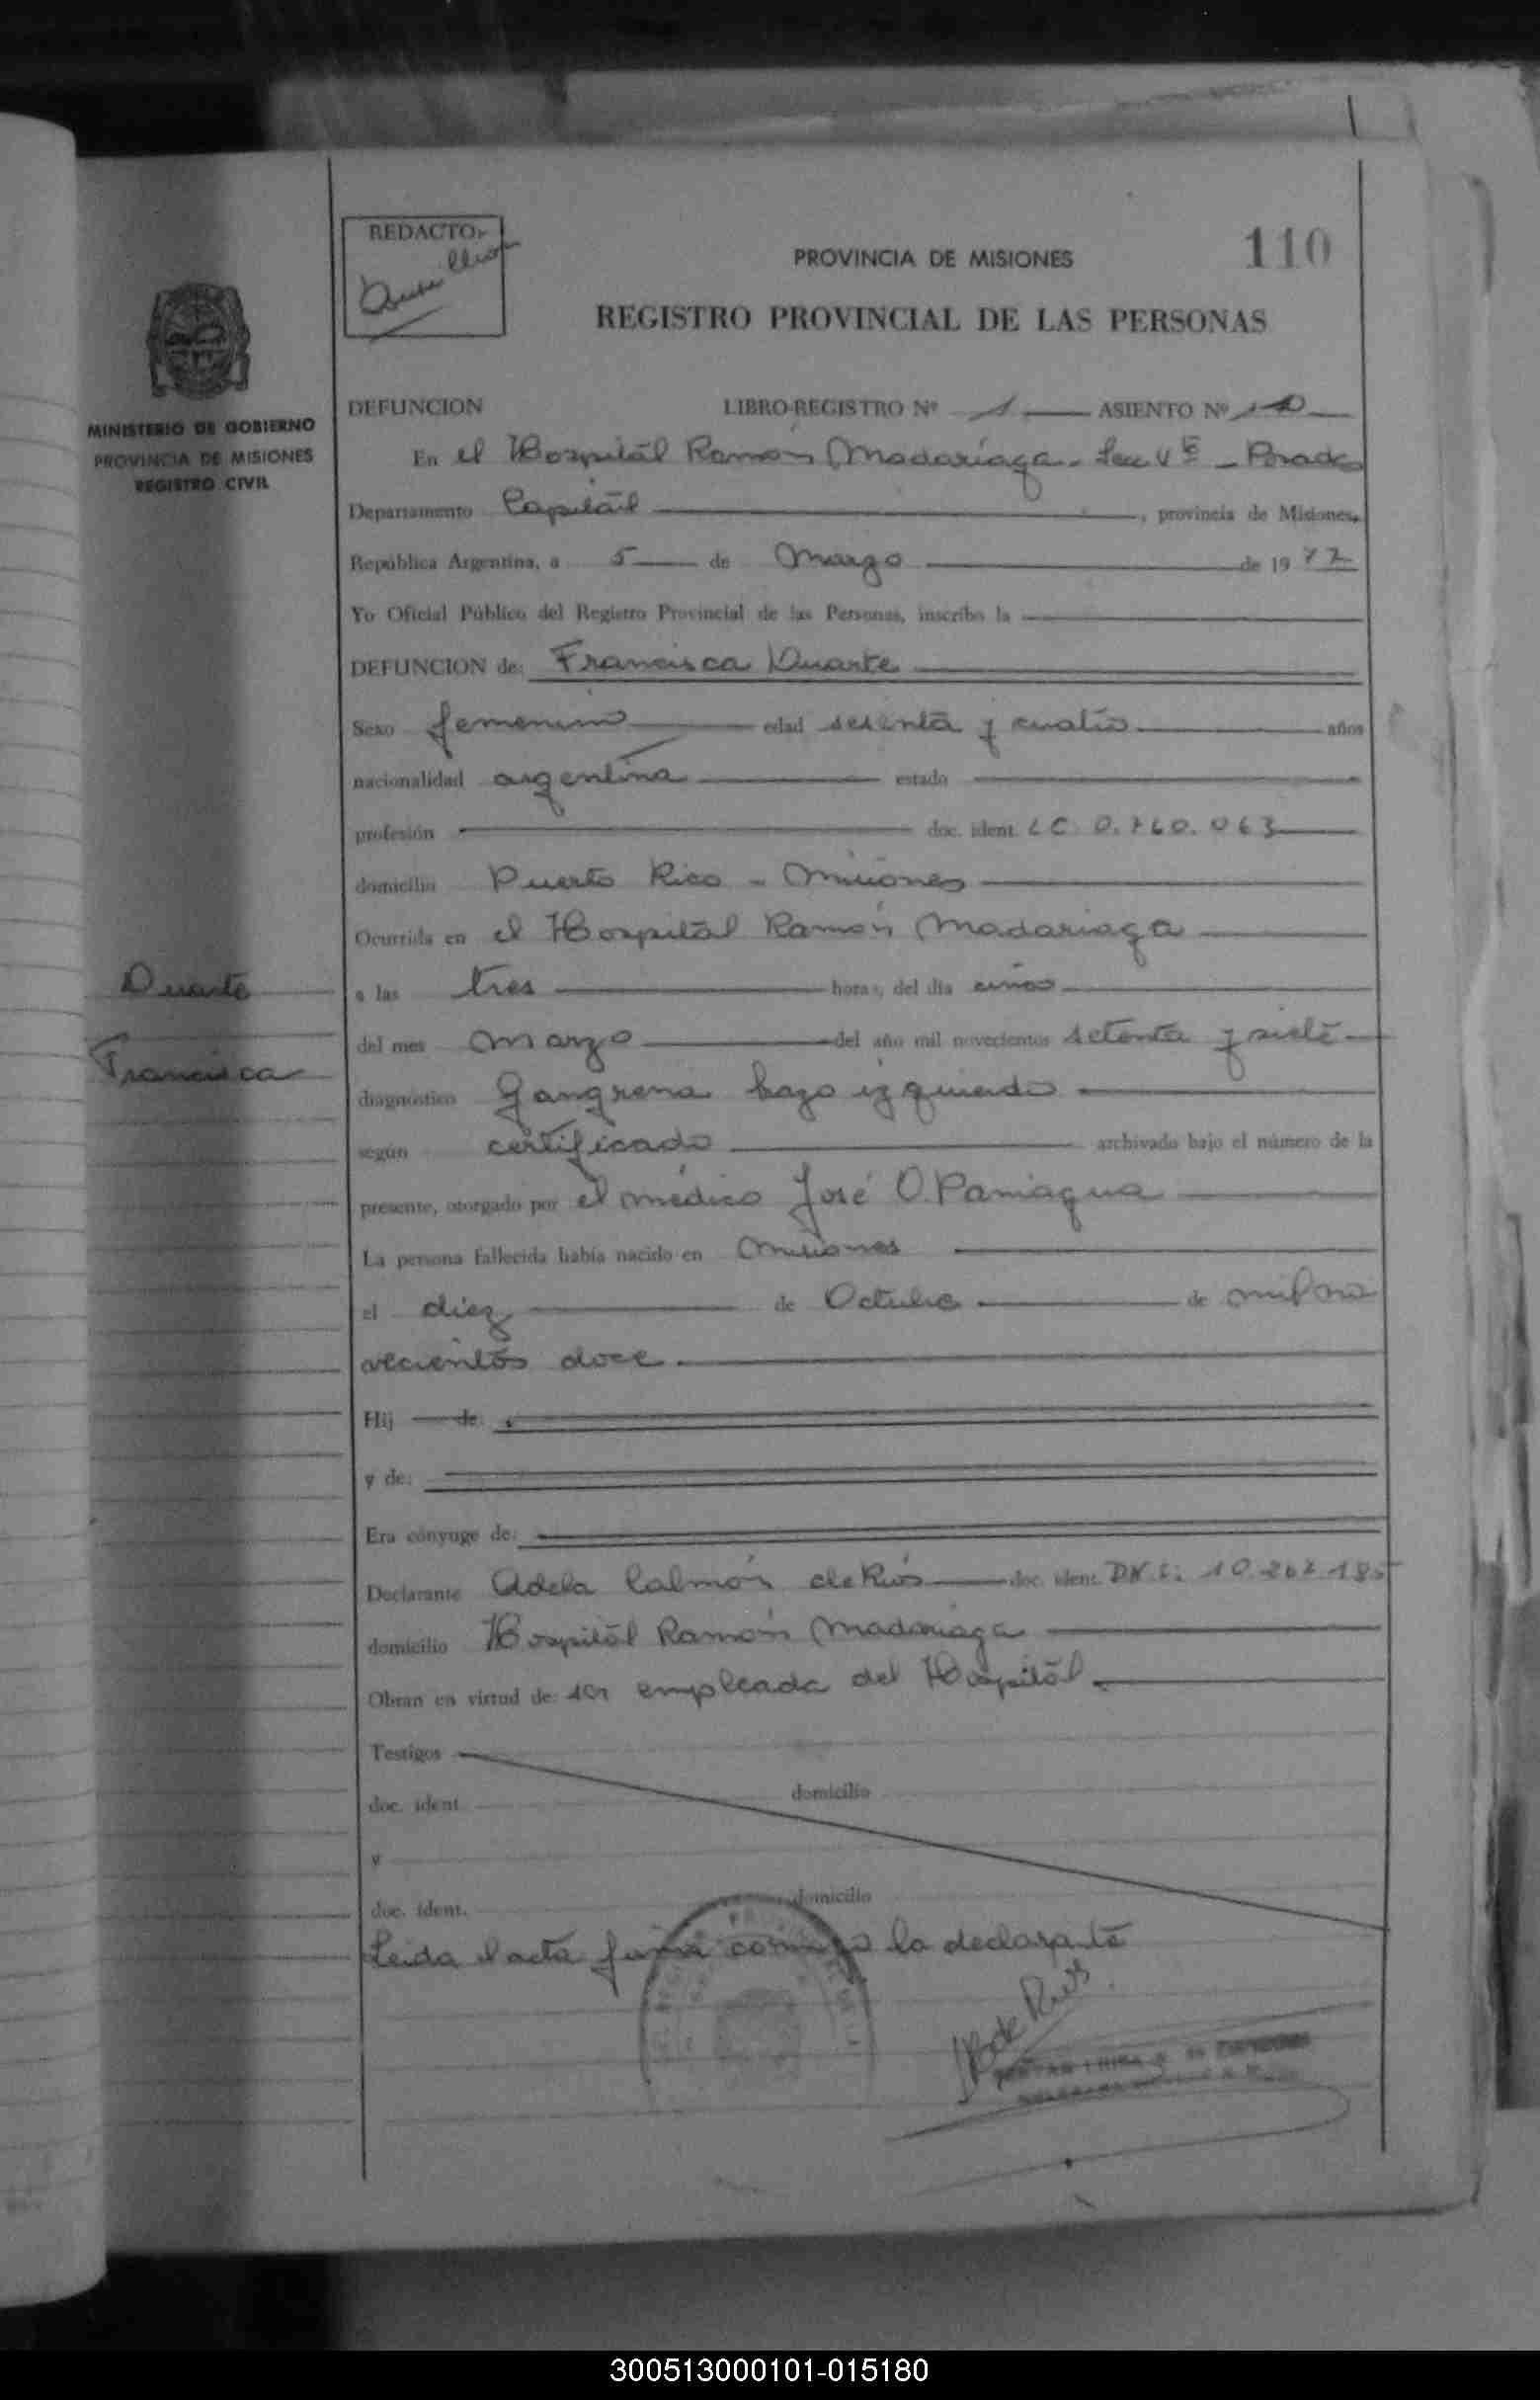 REDACTO:
PROVINCIA DE MISIONES
110
REGISTRO PROVINCIAL DE LAS PERSONAS
MINISTERIO DE GOBIERNO
PROVINCIA DE MISIONES
REGISTRO CIVIL
DEFUNCION LIBRO-REGISTRO Nº 1 ASIENTO Nº
En el Hospital Ramón Madariaga - Posadas
Departamento Capital, provincia de Misiones,
República Argentina, a 5 de Marzo de 1977
Yo Oficial Público del Registro Provincial de las Personas, inscribo la
DEFUNCION de: Francisca Duarte
Sexo femenino edad sesenta y cuatro años
nacionalidad argentina estado
profesión doc. ident. LC 0.760.063
domicilio Puerto Rico - Misiones
Ocurrida en el Hospital Ramón Madariaga
Duarte
a las tres horas, del día cinco
del mes Marzo del año mil novecientos setenta y siete
Francisca
diagnóstico Gangrena brazo izquierdo
según certificado archivado bajo el número de la
presente, otorgado por el médico José O. Paniagua
La persona fallecida había nacido en Misiones
el diez de Octubre de mil no
vecientos doce.
Hij de:
y de:
Era cónyuge de:
Declarante Adela Calmón de Ríos doc. ident. DN.I. 10.262.185
domicilio Hospital Ramón Madariaga
Obran en virtud de: ser empleada del Hospital.
Testigos
doc. ident. domicilio
y
doc. ident. domicilio
Leida el acta firma conmigo la declarante
de Rios
300513000101-015180